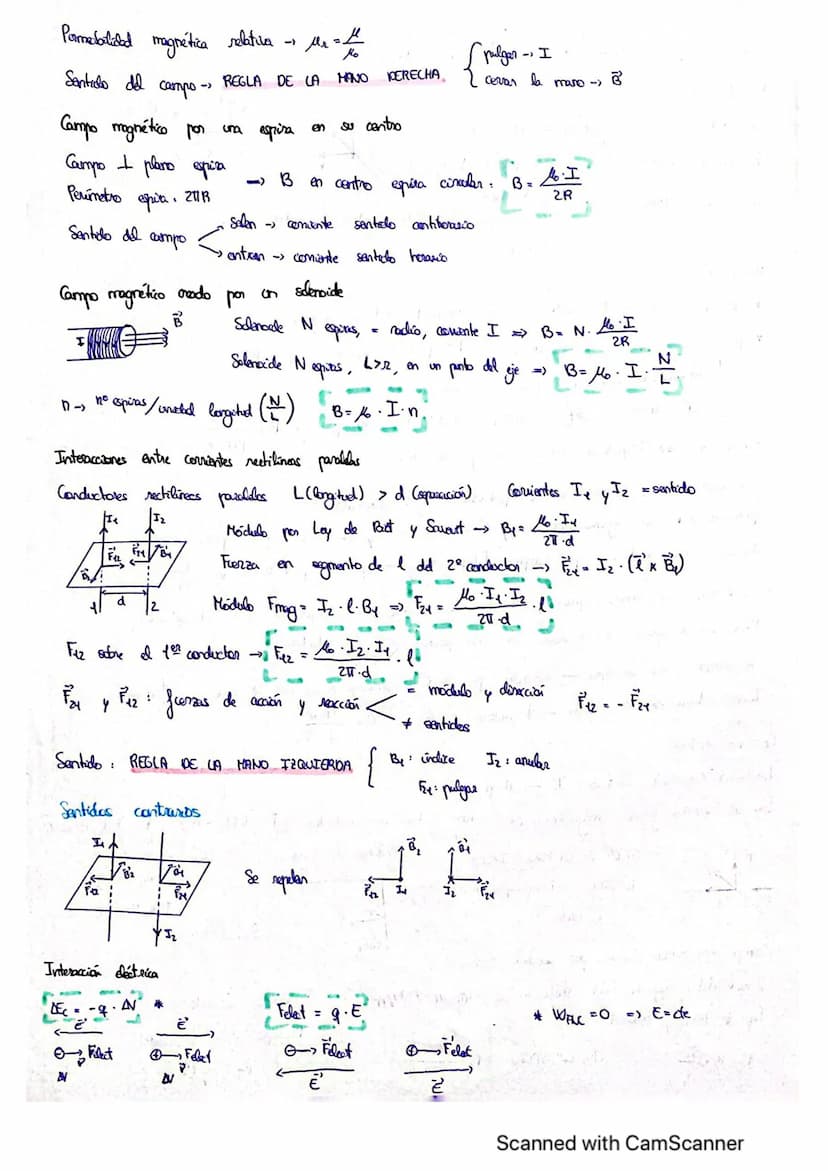 Permeabilidad magnética relativa → μr = μ/μ₀
Sentido del campo → REGLA DE LA MANO DERECHA. { pulgar → I
cerrar la mano → B⃗
Campo magnético por una espira en su centro
Campo ⊥ plano espira
Perímetro espira: 2πR → B en centro espira circular: B = μ₀·I/2R
Sentido del campo
Salen → corriente sentido antihorario
entran → corriente sentido horario
Campo magnético creado por un solenoide
I B⃗ Solenoide N espiras, = radio, corriente I ⇒ B = N · μ₀·I/2R
Solenoide N espiras, L>r, en un punto del eje ⇒ B = μ₀ · I · N/L
n → nº espiras/unidad longitud (N/L) B = μ₀ · I · n
Interacciones entre corrientes rectilíneas paralelas
Conductores rectilíneos paralelos L (longitud) > d (separación) Corrientes I₁ y I₂ = sentido
I₁ I₂ Módulo por Ley de Biot y Savart → B₁ = μ₀·I₁/2π·d
F⃗₁₂ F⃗₂₁ B⃗₁ B⃗₂ Fuerza en segmento de l del 2º conductor → F⃗₂₁ = I₂ · (l⃗ × B⃗₁)
1 d 2 Módulo Fmag = I₂ · l · B₁ ⇒ F₂₁ = μ₀·I₁·I₂/2π·d · l
F₁₂ sobre el 1er conductor → F₁₂ = μ₀·I₂·I₁/2π·d · l
F⃗₂₁ y F⃗₁₂ : fuerzas de acción y reacción
= módulo y dirección F⃗₁₂ = - F⃗₂₁
≠ sentidos
Sentido : REGLA DE LA MANO IZQUIERDA { B₁ : índice I₂ : anular
F₂₁ : pulgar
Sentidos contrarios
I₁ B⃗₂ B⃗₁ F⃗₁₂ F⃗₂₁ I₂
Se repelen
B⃗₂ B⃗₁
F⃗₁₂ I₁ I₂ F⃗₂₁
Interacción eléctrica
ΔEc = -q · ΔV * Felect = q · E⃗ * WFNC = 0 ⇒ E = cte
E⃗ E⃗
⊖→ Felect ⊕→ Felect ⊖→ F⃗elect ⊕→ F⃗elect
ΔV ΔV E⃗ E⃗
Scanned with CamScanner